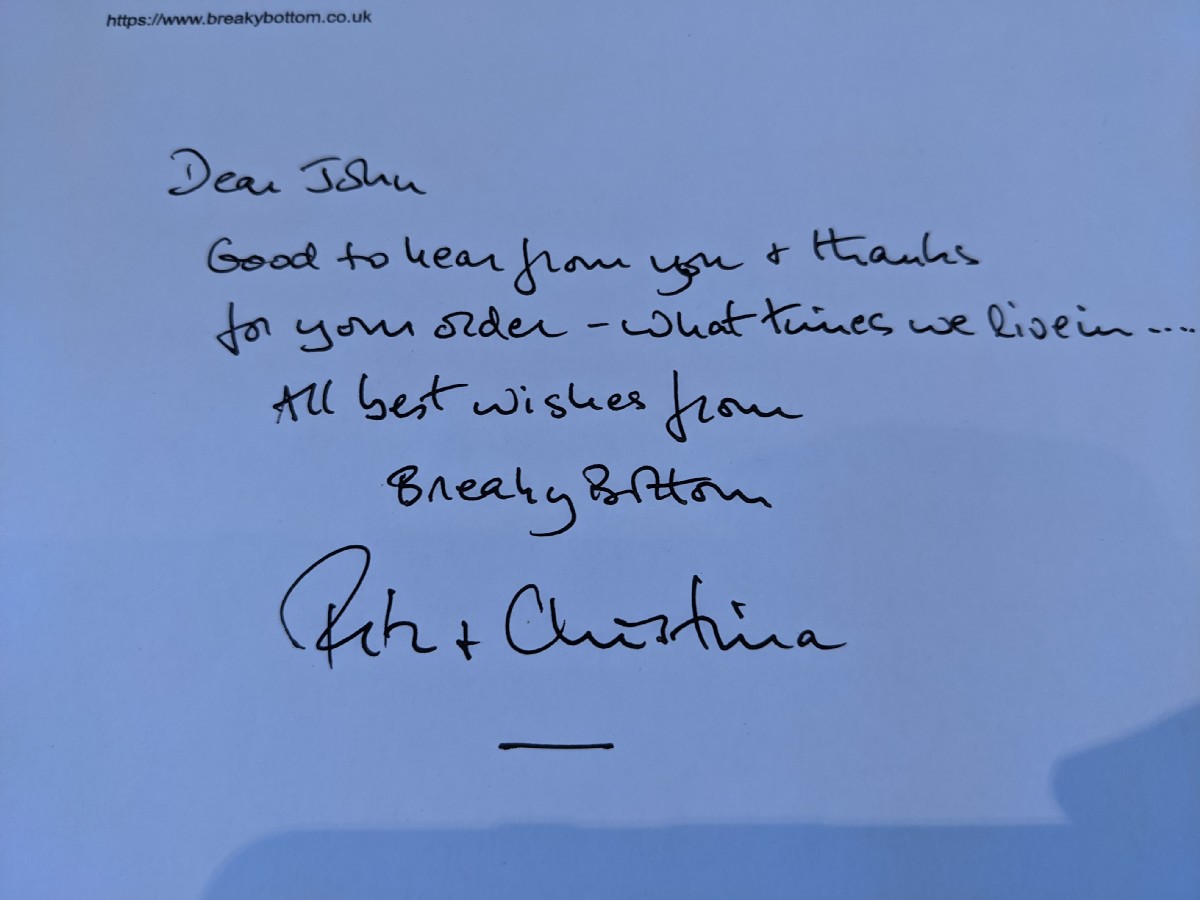 https://www.breakybottom.co.uk
Dear John
Good to hear from you + thanks
for your order - what times we live in ....
All best wishes from
Breaky Bottom
Peter + Christina